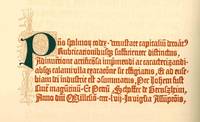 Pñs spalmoꝝ codex. venustate capitaliū decoratꝰ
Rubricationibusqꝫ sufficienter distinctus,
Adinuentione artificiosa imprimendi ac caracterizandi.
absqꝫ calami vlla exaracone sic effigiatus, Et ad euse-
biam dei industrie est ɔsummatus, Per Iohem fust
Ciuē magūtinū. Et Petrū Schoffer de Gernszheim,
Anno dni Millesimo cccc lvij In vigilia Assūpcōis,